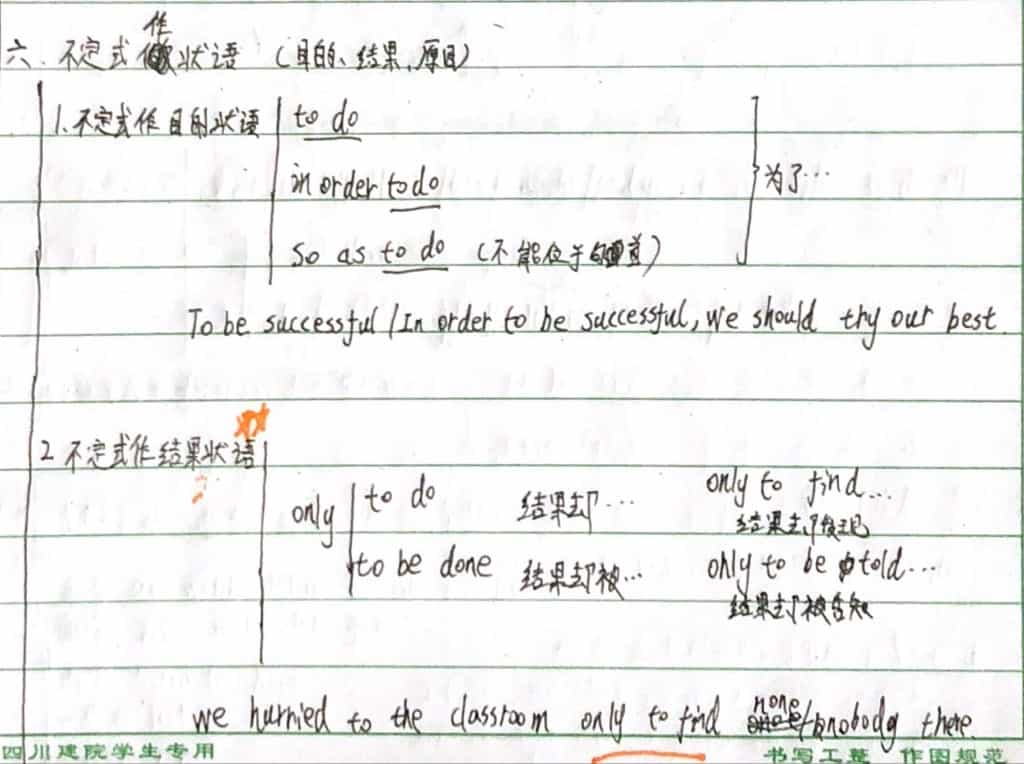 作
六.不定式状语(目的、结果、原因)
1.不定式作目的状语 to do
in order to do 为了…
so as to do (不能位于首)
To be successful/In order to be successful, we should try our best.
2 不定式作结果状语
only to do 结果却… only to find...
结果却发现
to be done 结果却被… only to be told...
结果却被告知
we hurried to the classroom only to find none/nobody there.
四川建院学生专用 书写工整 作图规范